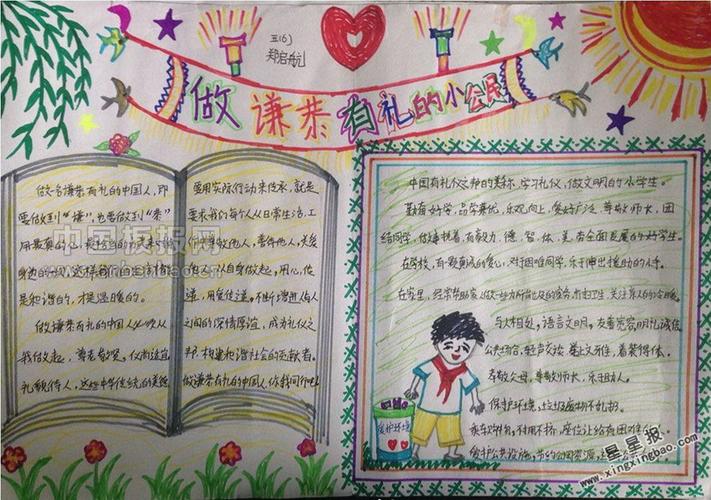 五(6)
郑启航
做谦恭有礼的小公民
做一名谦恭有礼的中国人,即
要做到"谦",也要做到"恭"
用真的心,
身边的一切,这样
是和谐的,才是温暖的。
做谦恭有礼的中国人从
我做起,尊老敬贤、仪尚适宜
礼貌待人,这些中华传统的美德
要用实际行动来传承,就是
要求我们每个人从日常生活、工
作中尊敬他人,善待他人,关爱
他人从自身做起,用心传
递,用爱传递,不断增进人
之间的深情厚谊,成为礼仪之
邦,构建和谐社会的贡献者。
做谦恭有礼的中国人,你我同行吧!
中国有礼仪之邦的美称,学习礼仪,做文明的小学生。
勤奋好学,品学兼优,乐观向上,爱好广泛,尊敬师长,团
结同学,做谦恭有礼,有毅力,德、智、体、美、劳全面发展的好学生。
在学校,有颗真诚的爱心,对于困难同学,乐于伸出援助的小手。
在家里,经常帮助家人做一些力所能及的家务,
与人相处,语言文明,友善宽容,明礼诚信
公共场合,轻声交谈,举止文雅,着装得体。
孝敬父母,尊敬师长,乐于助人。
保护环境,垃圾废物不乱扔。
乘车购物,不拥不挤,座位让给有困难的人。
爱护公共设施,节约公用资源,
爱护环境
中国板报网
banbaowang
星星报
www.xingxingbao.cn